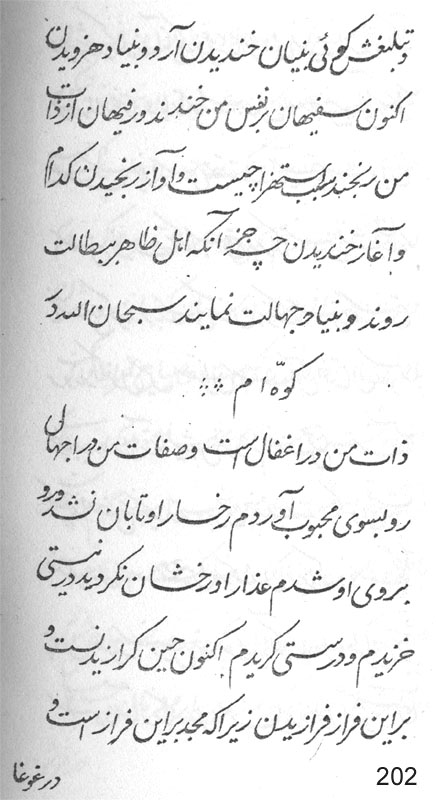 و تبلیغش گوئی بنیان خندیدن آرد و بنیاد هزویدن
اکنون سفیهان بر نفس من خندند و رفیهان از ذات
من رنجند سبب استهزا چیست و آواز رنجیدن کدام
و آغاز خندیدن چه جز آنکه اهل ظاهر ببطالت
روند و بنیاد جهالت نمایند سبحان الله
کوّه ام
ذات من در اغفال است و صفات من در اجهال
رو بسوی محبوب آوردم رخسار او تابان نشد و رو
بروی او شدم عذار او رخشان نکردید در نیستی
خزیدم و درستی کزیدم اکنون حین کرازیدنست و
بر این فراز فرازیدن زیرا که مجد بر این فراز است و
در غوغا
202